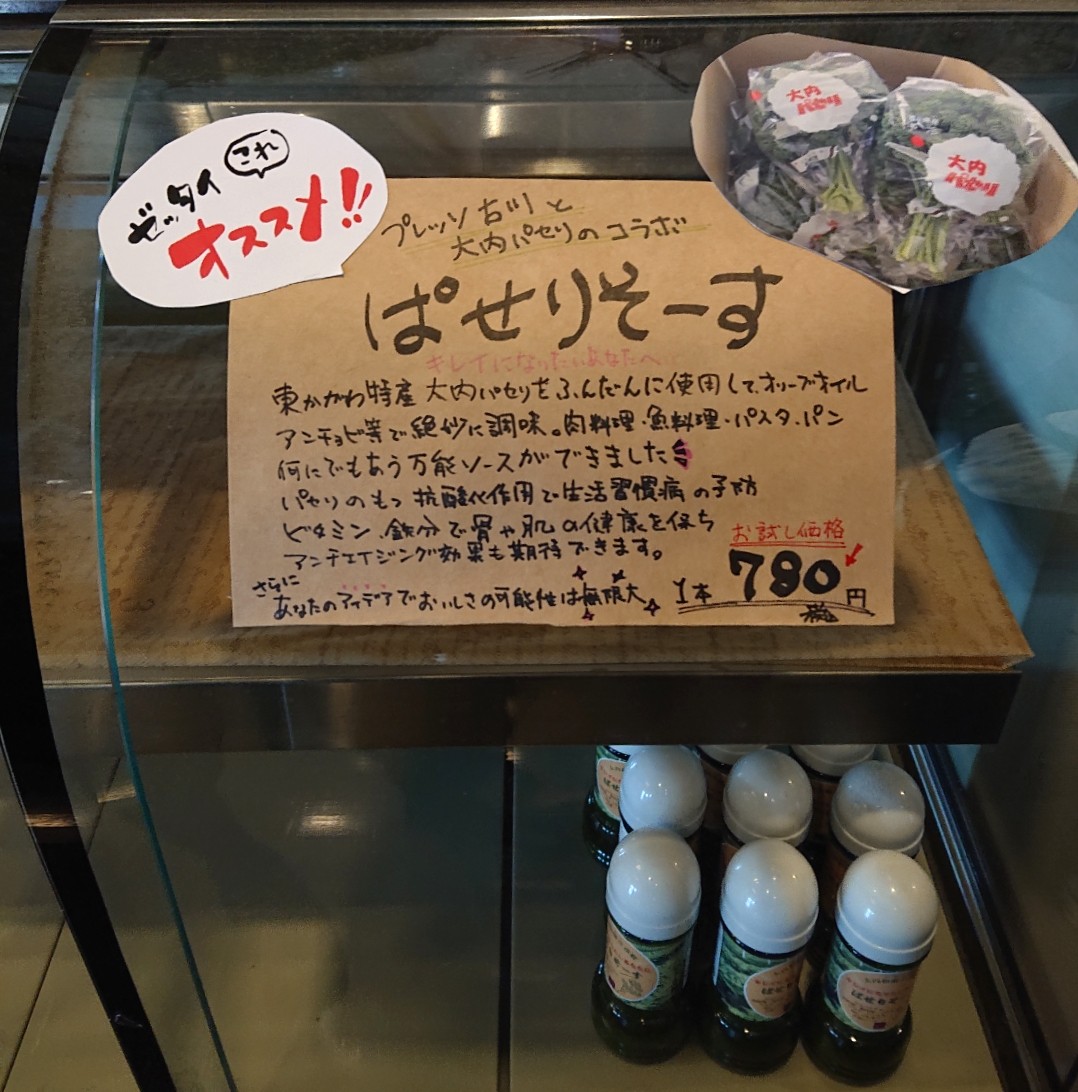 ゼッタイ これ
オススメ!!
大内
パセリ
大内
パセリ
プレッソ古川と
大内パセリのコラボ
ぱせりそーす
キレイになりたいあなたへ
東かがわ特産 大内パセリをふんだんに使用して、オリーブオイル
アンチョビ等で絶妙に調味。肉料理・魚料理・パスタ・パン
何にでもあう万能ソースができました!
パセリのもつ抗酸化作用で生活習慣病の予防
ビタミン、鉄分で骨や肌の健康を保ち
アンチエイジング効果も期待できます。
さらに
あなたのアイデアでおいしさの可能性は無限大
お試し価格
1本 780円
ぱせりそ